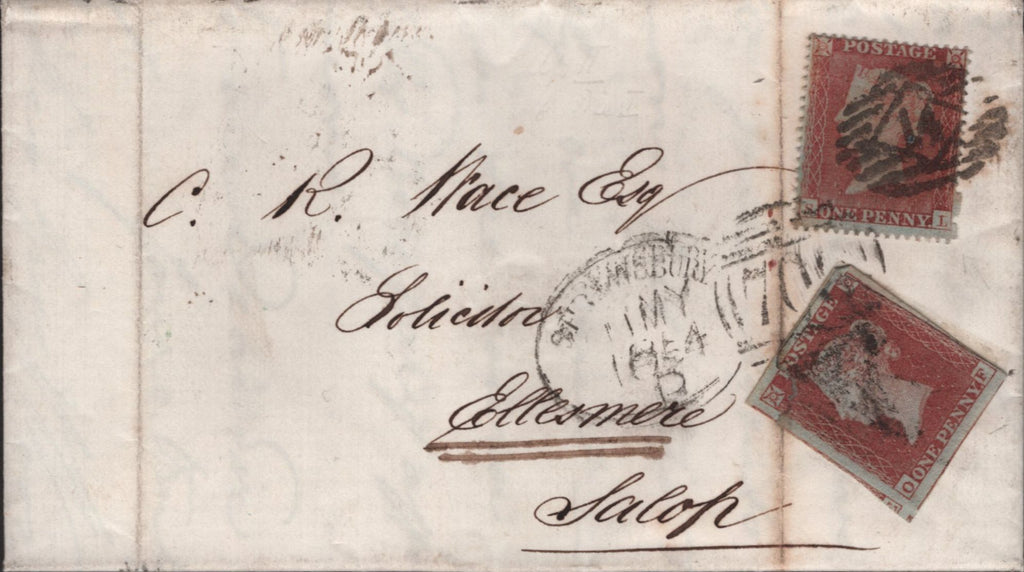 C. R. Wace Esq
Solicitor
Ellesmere
Salop
SHREWSBURY
MY
1854
D
POSTAGE
ONE PENNY L
POSTAGE
O ONE PENNY F